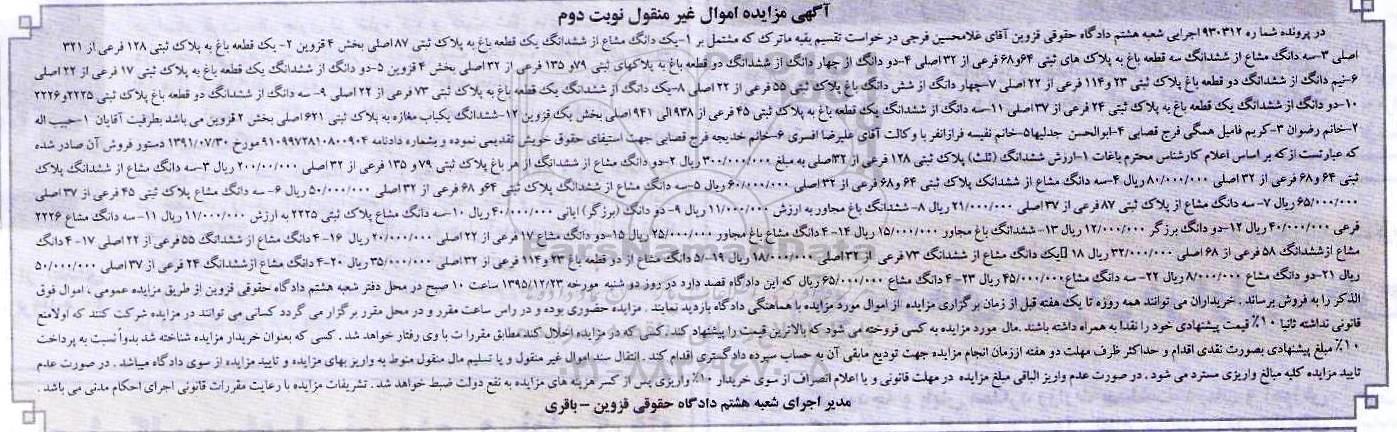 آگهی مزایده اموال غیر منقول نوبت دوم
در پرونده شماره ۹۳۰۳۱۲ اجرایی شعبه هشتم دادگاه حقوقی قزوین آقای غلامحسین فرجی درخواست تقسیم بقیه ماترک که مشتمل بر ۱-یک دانگ مشاع از ششدانگ یک قطعه باغ به پلاک ثبتی ۸۷ اصلی بخش ۴ قزوین ۲- یک قطعه باغ به پلاک ثبتی ۱۲۸ فرعی از ۳۲۱
اصلی ۳-سه دانگ مشاع از ششدانگ سه قطعه باغ به پلاک های ثبتی ۶۴و۶۸ فرعی از ۳۲ اصلی ۴-دو دانگ از چهار دانگ از ششدانگ دو قطعه باغ به پلاکهای ثبتی ۷۹و ۱۳۵ فرعی از ۳۲ اصلی بخش ۴ قزوین ۵-دو دانگ از ششدانگ یک قطعه باغ به پلاک ثبتی ۱۷ فرعی از ۲۲ اصلی
۶-نیم دانگ از ششدانگ دو قطعه باغ پلاک ثبتی ۲۳ و۱۱۴ فرعی از ۲۲ اصلی ۷-چهار دانگ از شش دانگ باغ پلاک ثبتی ۵۵ فرعی از ۲۲ اصلی ۸-یک دانگ از ششدانگ یک قطعه باغ به پلاک ثبتی ۷۳ فرعی از ۲۲ اصلی ۹- سه دانگ از ششدانگ دو قطعه باغ پلاک ثبتی ۲۲۲۵و۲۲۲۶
۱۰-دو دانگ از ششدانگ یک قطعه باغ به پلاک ثبتی ۲۴ فرعی از ۳۷ اصلی ۱۱-سه دانگ از ششدانگ یک قطعه باغ به پلاک ثبتی ۴۵ فرعی از ۹۳۸ الی ۹۴۱ اصلی بخش یک قزوین ۱۲-ششدانگ یکباب مغازه به پلاک ثبتی ۶۲۱ اصلی بخش ۲ قزوین می باشد بطرفیت آقایان ۱-حبیب اله
۲-خانم رضوان ۳-کریم فامیل همگی فرج قصابی ۴-ابوالحسن جدلیها ۵-خانم نفیسه فرازانفر با وکالت آقای علیرضا افسری ۶-خانم خدیجه فرج قصابی جهت استیفای حقوق خویش تقدیمی نموده و بشماره دادنامه ۹۱۰۹۹۷۲۸۱۰۸۰۰۹۰۴ مورخ ۱۳۹۱/۰۷/۳۰ دستور فروش آن صادر شده
که عبارتست از که بر اساس اعلام کارشناس محترم باغات ۱-ارزش ششدانگ (ثلث) پلاک ثبتی ۱۲۸ فرعی از ۳۲ اصلی به مبلغ ۳۰۰/۰۰۰/۰۰۰ ریال ۲-دو دانگ مشاع از ششدانگ از هر باغ پلاک ثبتی ۷۹ و ۱۳۵ فرعی از ۳۲ اصلی ۲۰۰/۰۰/۰۰۰ ریال ۳-سه دانگ مشاع از ششدانگ پلاک
ثبتی ۶۴ و۶۸ فرعی از ۳۲ اصلی ۸۰/۰۰۰/۰۰۰ ریال ۴-سه دانگ مشاع از ششدانگ پلاک ثبتی ۶۴ و۶۸ فرعی از ۳۲ اصلی ۶۰/۰۰۰/۰۰۰ ریال ۵-سه دانگ مشاع از ششدانگ پلاک ثبتی ۶۴و ۶۸ فرعی از ۳۲ اصلی ۵۰/۰۰۰/۰۰۰ ریال ۶- سه دانگ مشاع پلاک ثبتی ۴۵ فرعی از ۳۷ اصلی
۶۵/۰۰۰/۰۰۰ ریال ۷-سه دانگ مشاع از پلاک ثبتی ۸۷ فرعی از ۳۷ اصلی ۲۱/۰۰۰/۰۰۰ ریال ۸- ششدانگ باغ مجاور به ارزش ۱۱/۰۰۰/۰۰۰ ریال ۹- دو دانگ (برزگر) ابانی ۴۰/۰۰۰/۰۰۰ ریال ۱۰-سه دانگ مشاع پلاک ثبتی ۲۲۲۵ به ارزش ۱۱/۰۰۰/۰۰۰ ریال ۱۱- سه دانگ مشاع ۲۲۲۶
فرعی ۴۰/۰۰۰/۰۰۰ ریال ۱۲-دو دانگ برزگر ۱۲/۰۰۰/۰۰۰ ریال ۱۳- ششدانگ باغ مجاور ۱۵/۰۰۰/۰۰۰ ریال ۱۴- ۴ دانگ مشاع باغ مجاور ۲۵/۰۰۰/۰۰۰ ریال ۱۵-دو دانگ مشاع ۱۷ فرعی از ۲۲ اصلی ۲۰/۰۰۰/۰۰۰ ریال ۱۶- ۴ دانگ مشاع از ششدانگ ۵۵ فرعی از ۲۲ اصلی ۱۷- ۴ دانگ
مشاع ازششدانگ ۵۸ فرعی از ۶۸ اصلی ۳۲/۰۰۰/۰۰۰ ریال ۱۸ یک دانگ مشاع از ششدانگ ۷۳ فرعی از ۲۲ اصلی ۱۸/۰۰۰/۰۰۰ ریال ۱۹-۵/ دانگ مشاع از دو قطعه باغ ۲۳ و۱۱۴ فرعی از ۲۲ اصلی ۳۵/۰۰۰/۰۰۰ ریال ۲۰-۴ دانگ مشاع ازششدانگ ۲۴ فرعی از ۳۷ اصلی ۵۰/۰۰۰/۰۰۰
ریال ۲۱-دو دانگ مشاع ۸/۰۰۰/۰۰۰ ریال ۲۲- سه دانگ مشاع ۴۵/۰۰۰/۰۰۰ ریال ۲۳-۴ دانگ مشاع ۶۵/۰۰۰/۰۰۰ ریال که این دادگاه قصد دارد در روز دو شنبه مورخه ۱۳۹۵/۱۲/۲۳ ساعت ۱۰ صبح در محل دفتر شعبه هشتم دادگاه حقوقی قزوین از طریق مزایده عمومی ، اموال فوق
الذکر را به فروش برساند . خریداران می توانند همه روزه تا یک هفته قبل از زمان برگزاری مزایده از اموال مورد مزایده با هماهنگی دادگاه بازدید نمایند . مزایده حضوری بوده و در راس ساعت مقرر و در محل مقرر برگزار می گردد کسانی می توانند در مزایده شرکت کنند که اولامنع
قانونی نداشته ثانیا ۱۰٪ قیمت پیشنهادی خود را نقدا به همراه داشته باشند. مال مورد مزایده به کسی فروخته می شود که بالاترین قیمت را پیشنهاد کند .کسی که در مزایده اخلال کند مطابق مقررات با وی رفتار خواهد شد . کسی که بعنوان خریدار مزایده شناخته شد بدواً نسبت به پرداخت
۱۰٪ مبلغ پیشنهادی بصورت نقدی اقدام و حداکثر ظرف مهلت دو هفته اززمان انجام مزایده جهت تودیع مابقی آن به حساب سپرده دادگستری اقدام کند . انتقال سند اموال غیر منقول و یا تسلیم مال منقول منوط به واریز بهای مزایده و تایید مزایده از سوی دادگاه میباشد . در صورت عدم
تایید مزایده کلیه مبالغ واریزی مسترد می شود . در صورت عدم واریز الباقی مبلغ مزایده در مهلت قانونی و یا اعلام انصراف از سوی خریدار ۱۰٪ واریزی پس از کسر هزینه های مزایده به نفع دولت ضبط خواهد شد . تشریفات مزایده با رعایت مقررات قانونی اجرای احکام مدنی می باشد .
مدیر اجرای شعبه هشتم دادگاه حقوقی قزوین – باقری
ParsNamadData